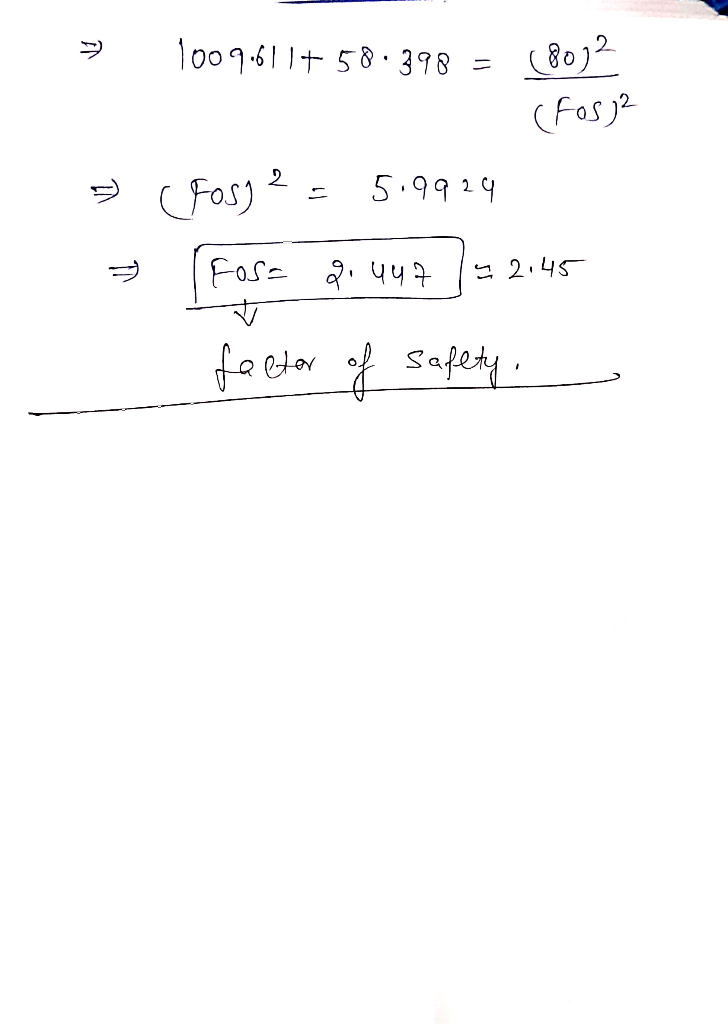 ⇒ 1009.611 + 58.398 = (80)² / (FOS)²
⇒ (FOS)² = 5.9924
⇒ FOS = 2.447 ≃ 2.45
↓
factor of safety.